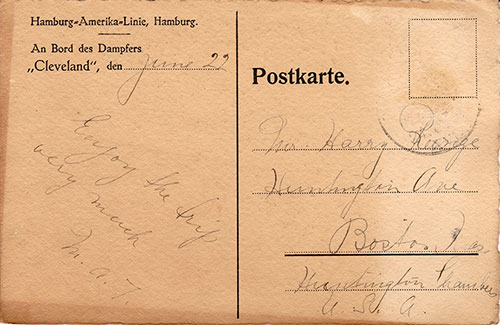 Hamburg-Amerika-Linie, Hamburg.
An Bord des Dampfers
„Cleveland", den June 22
Enjoy the trip
very much
M. A. T.
Postkarte.
Mr. Harry
Huntington Ave
Boston
Huntington Chambers
U. S. A.